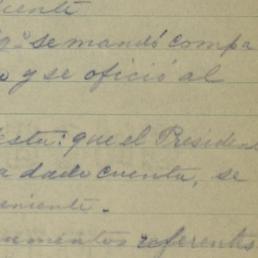 se mandó compa
y se ofició al
esta: que el Presiden
a dado cuenta, se
eniente.
umentos referentes